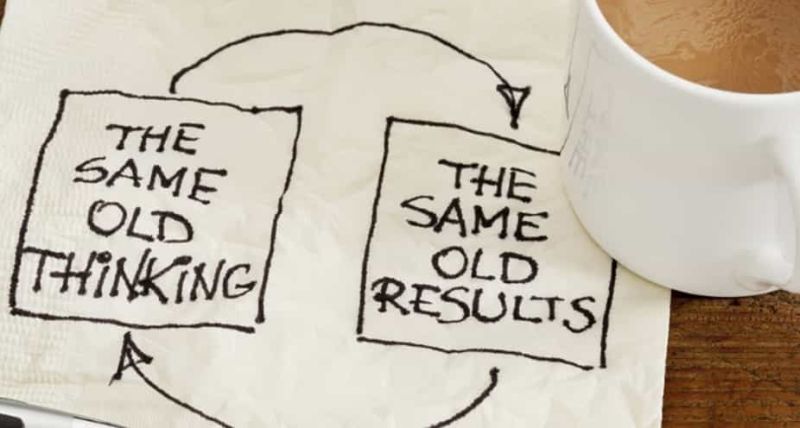 THE
SAME
OLD
THiNKiNG
THE
SAME
OLD
RESULTS